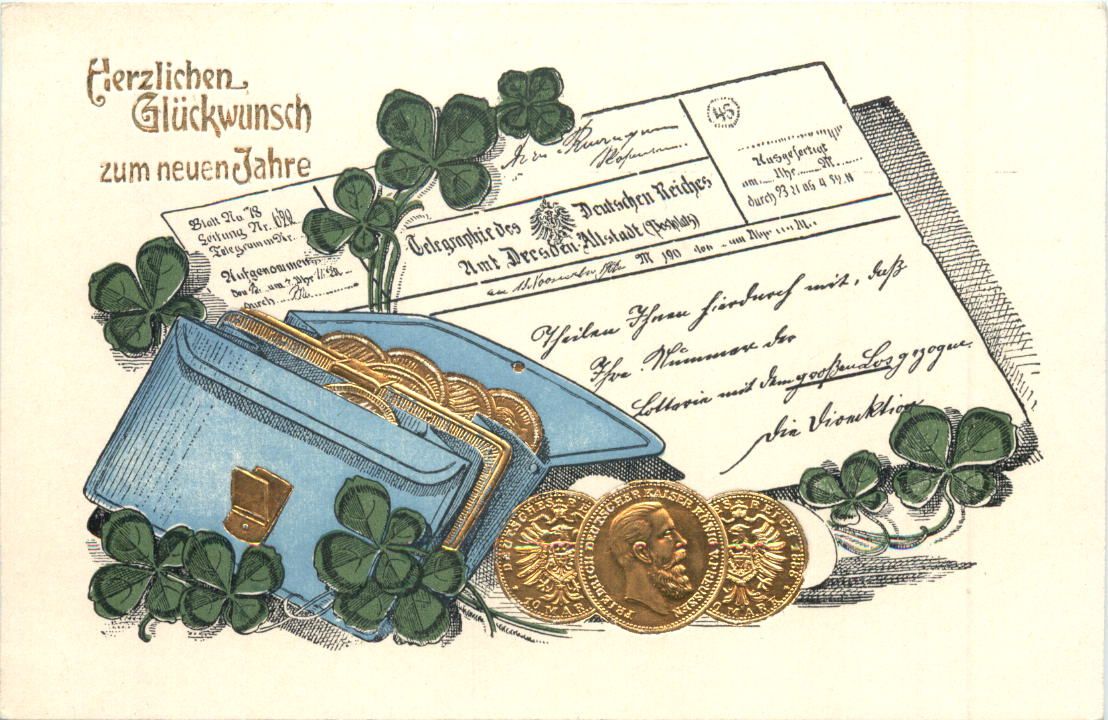 Herzlichen
Glückwunsch
zum neuen Jahre
Blatt No. 78
Leitung Nr. 620
Telegramm Nr.
Aufgenommen
den um Uhr
durch
Telegraphie des Deutschen Reiches
Amt Dresden Altstadt (Postplatz)
45
Ausgefertigt
am Uhr M
durch 93 21 06 4 59 N
M 190 den um Uhr M.
Theilen Ihnen hierdurch mit, daß
Ihre Nummer der
Lotterie mit dem großen Los gezogen
die Direktion
DEUTSCHES RE
10 MAR
FRIEDRICH DEUTSCHER KAISER KÖNIG V. PREUSSEN
S REICH 1888
MARK